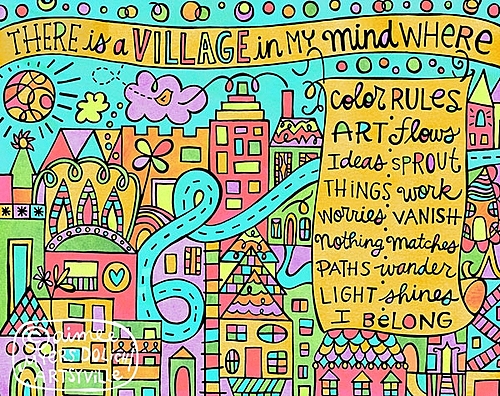 THERE is a VILLAGE in MY mind WHERE
color RULES
ART flows
Ideas SPROUT
THINGS work
worries VANISH
Nothing matches
PATHS wander
LIGHT shines
I BELONG
ARTSYVILLE